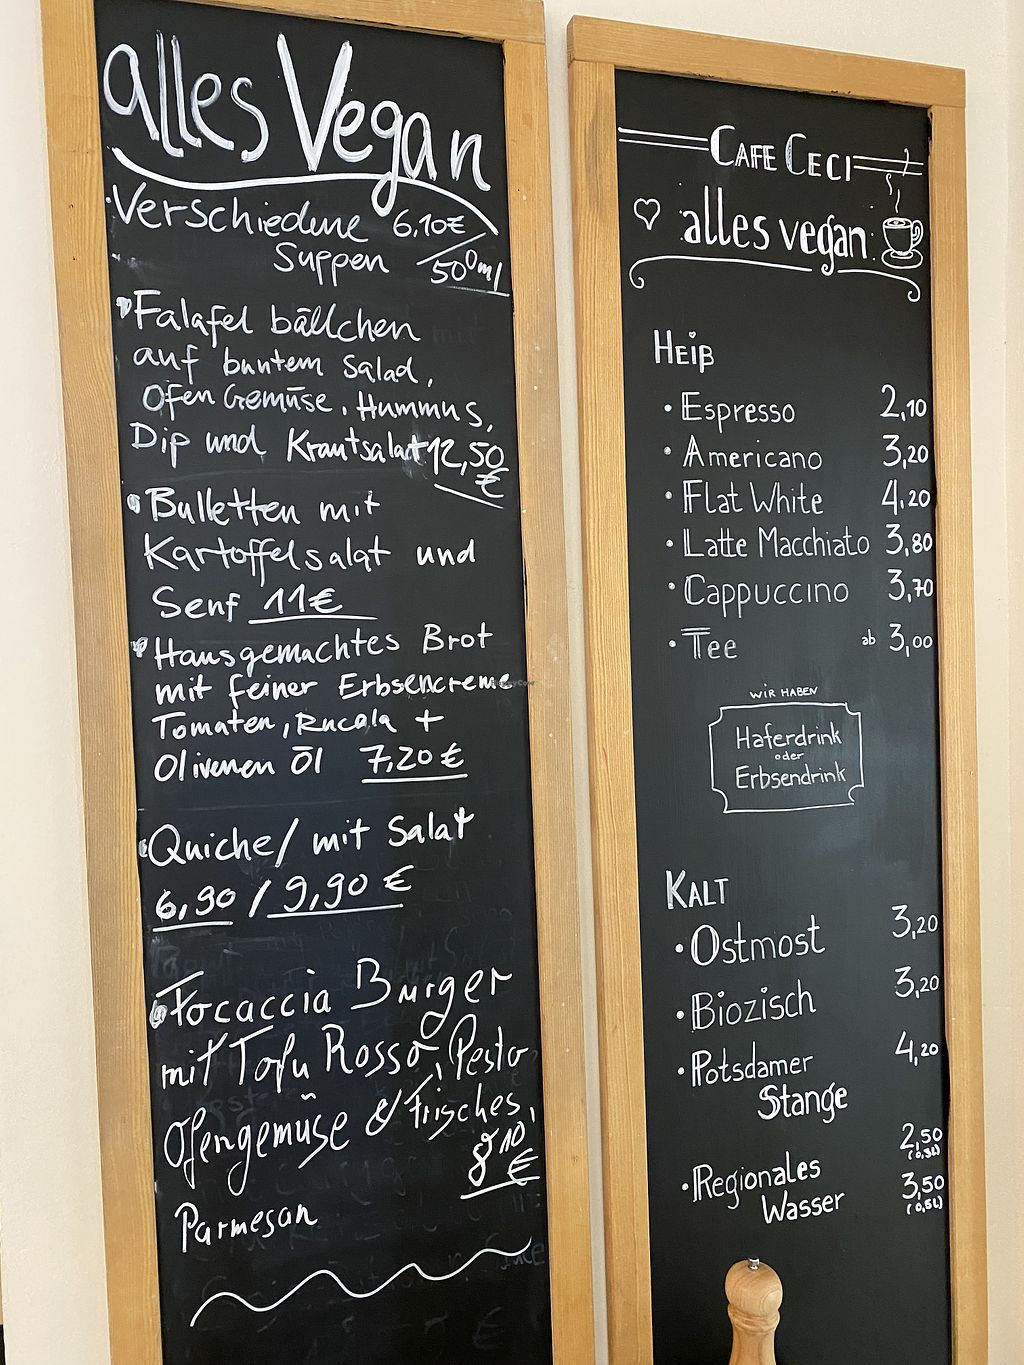 alles Vegan
Verschiedene 6,10€
Suppen / 500ml
Falafel bällchen
auf buntem Salad,
Ofen Gemüse, Hummus,
Dip und Krautsalat 12,50
€
Bulletten mit
Kartoffelsalat und
Senf 11€
Hausgemachtes Brot
mit feiner Erbsencreme
Tomaten, Rucola +
Olivenen Öl 7,20 €
Quiche/ mit Salat
6,90 / 9,90 €
Focaccia Burger
mit Tofu Rosso, Pesto
Ofengemüse & Frisches,
8,10
€
Parmesan
CAFE CECI
alles vegan
HEIß
• Espresso 2,10
• Americano 3,20
• Flat White 4,20
• Latte Macchiato 3,80
• Cappuccino 3,70
• Tee ab 3,00
WIR HABEN
Haferdrink
oder
Erbsendrink
KALT
• Ostmost 3,20
• Biozisch 3,20
• Potsdamer 4,20
Stange
2,50
(0,3L)
• Regionales 3,50
Wasser (0,5L)